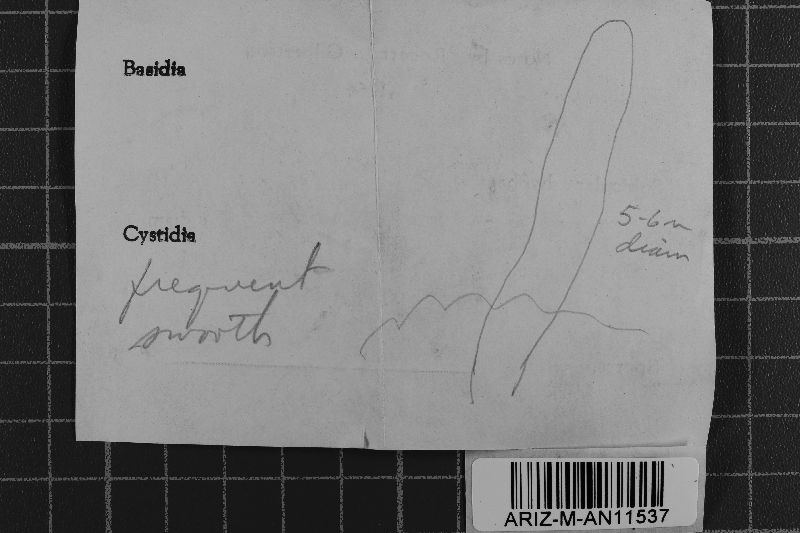 Basidia
Cystidia
frequent
smooth
5-6 μ
diam
ARIZ-M-AN11537